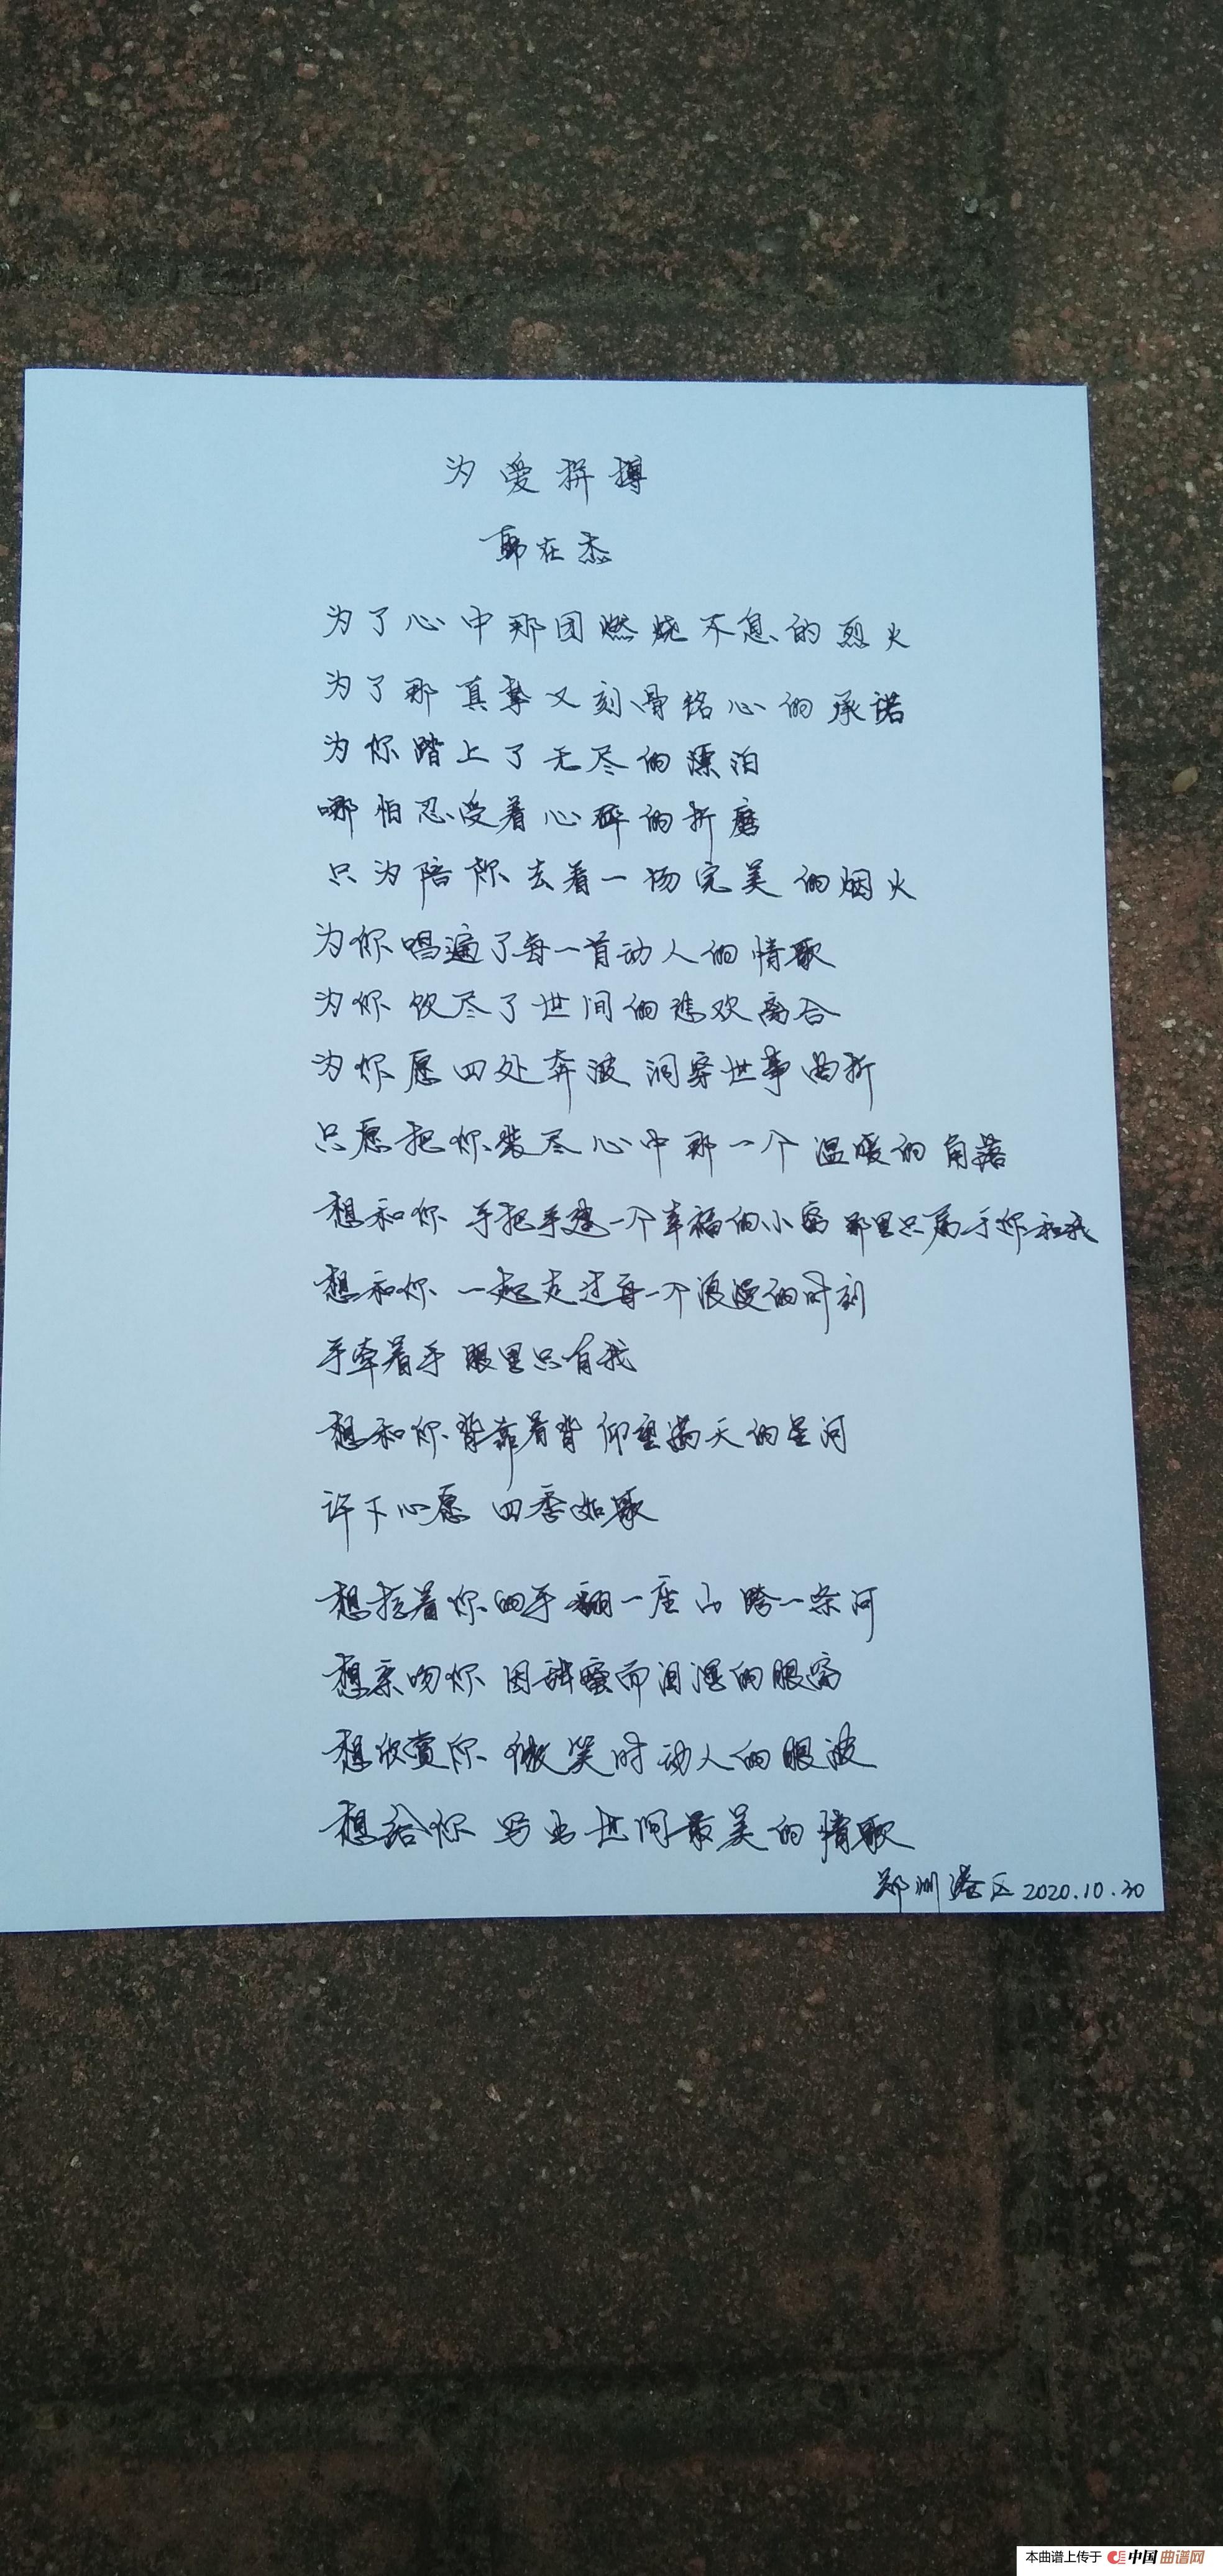 为爱拼搏
郭在杰
为了心中那团燃烧不息的烈火
为了那真挚又刻骨铭心的承诺
为你踏上了无尽的漂泊
哪怕忍受着心碎的折磨
只为陪你去看一场完美的烟火
为你唱遍了每一首动人的情歌
为你饮尽了世间的悲欢离合
为你愿四处奔波 洞穿世事曲折
只愿把你装尽心中那一个温暖的角落
想和你 手把手建一个幸福的小窝 那里只属于你和我
想和你 一起走过每一个浪漫的时刻
手牵着手 眼里只有我
想和你 背靠着背 仰望满天的星河
许下心愿 四季如歌
想拉着你的手 翻一座山 跨一条河
想亲吻你 因甜蜜而泪湿的眼窝
想欣赏你 微笑时动人的眼波
想给你 写出世间最美的情歌
郑州港区 2020.10.30
本曲谱上传于 中国曲谱网